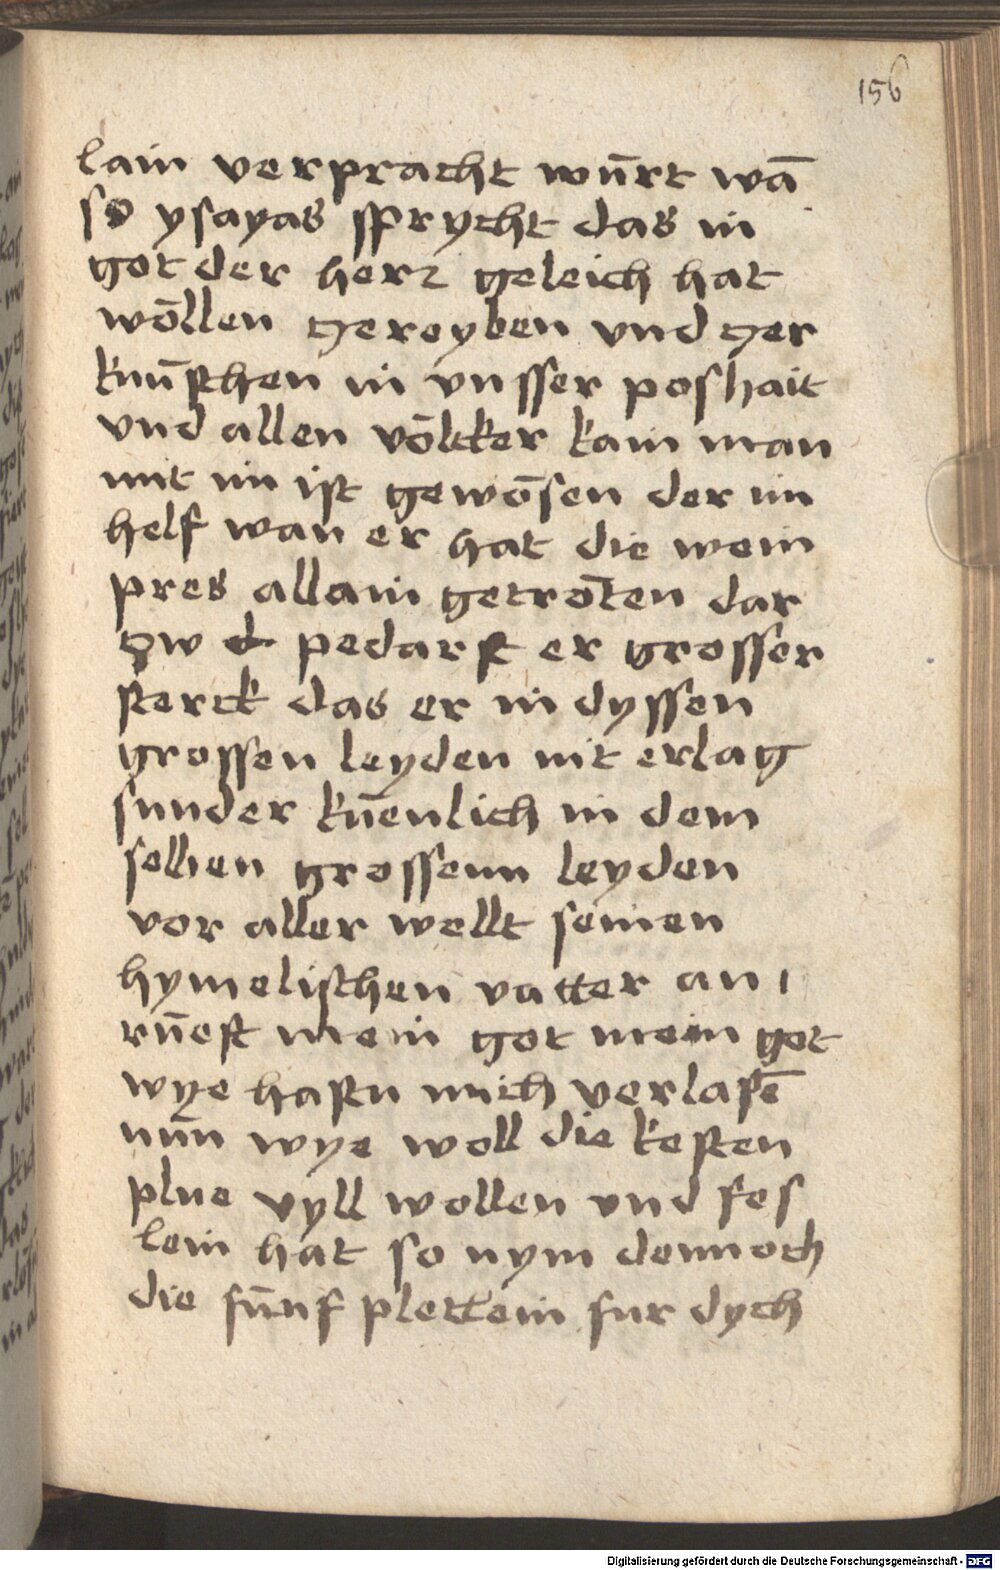 156
lain verpracht wu̅rt wa̅
so ysayas sprycht das in
got der herz geleich hat
wo̅llen gereyben vnd zer
knu̅schen in vnsser poshait
vnd allen vo̅lcker kain man
mit im ist gewo̅sen der im
helf wan er hat die wein
pres allain getro̅ten dar
zw d pedarft er grosser
sterck das er in dyssen
grossen leyden nit erlag
sunder ku̅enlich in dem
selben grossenn leyden
vor aller wellt seinen
hymelischen vatter an
ru̅eft mein got mein got
wye hastu mich verlase̅
nu̅n wye woll die kesten
plue vyll wollen vnd fes
lein hat so nym dennoch
die fu̅nf plettein fur dych
Digitalisierung gefördert durch die Deutsche Forschungsgemeinschaft - DFG